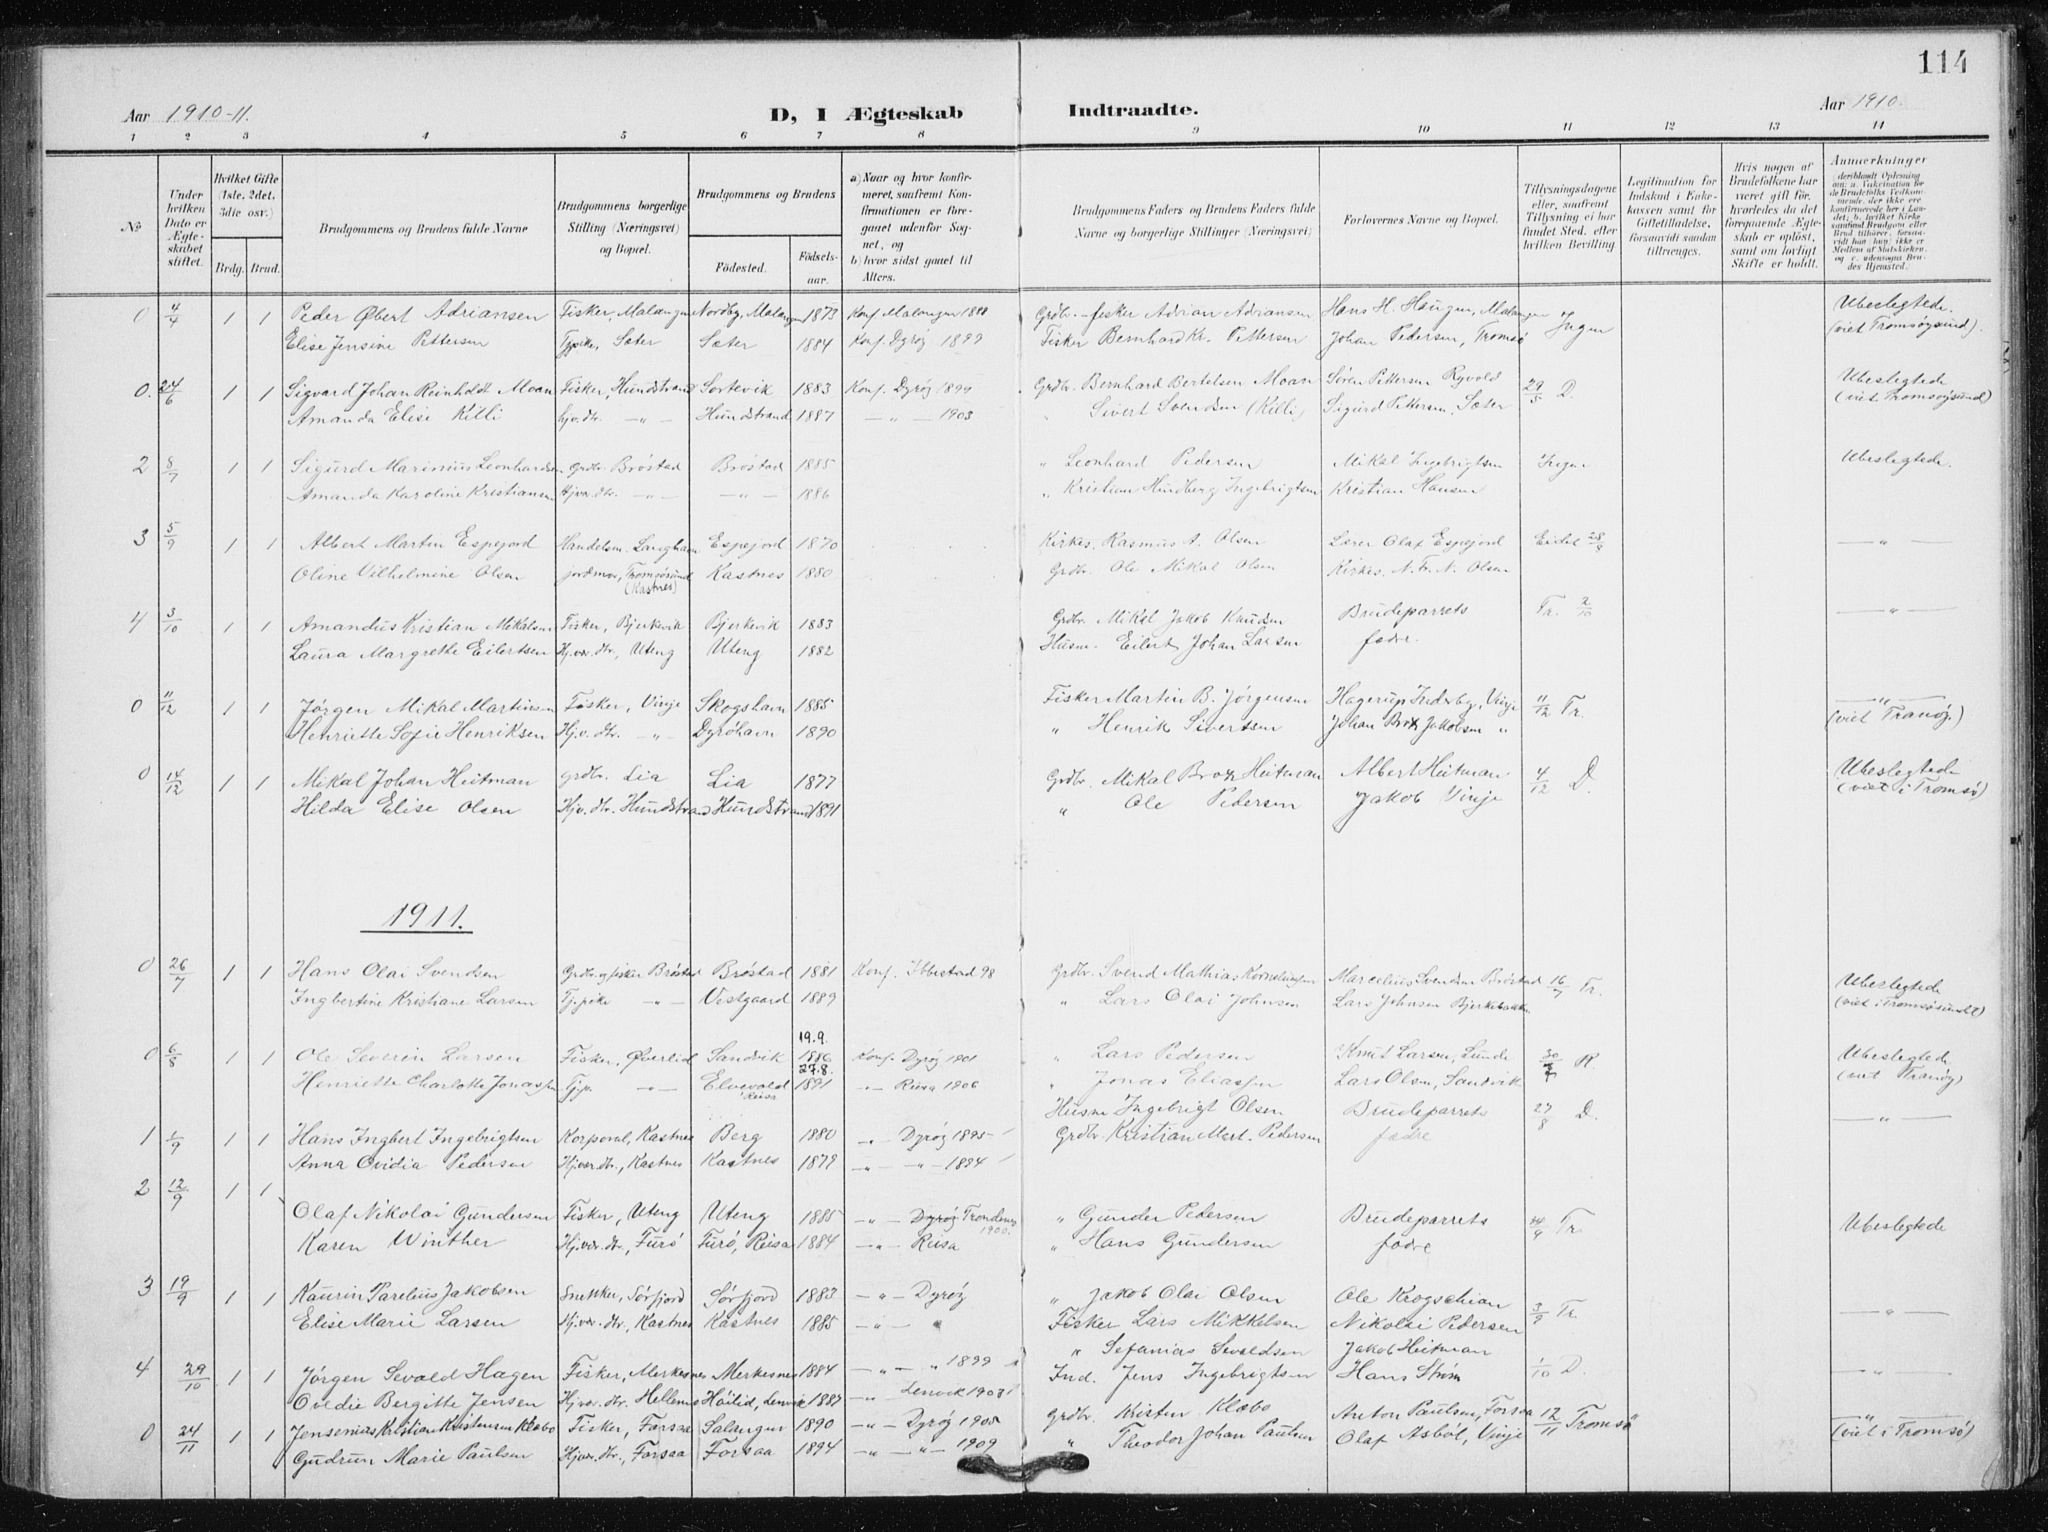 114
Aar 1910-11. D, I Ægteskab Indtraadte. Aar 1910.
1 2 3 4 5 6 7 8 9 10 11 12 13 14
No
Under hvilken Dato er Ægteskabet stiftet.
Hvilket Gifte (1ste, 2det, 3die osv.)
Brdg. Brud.
Brudgommens og Brudens fulde Navne
Brudgommens borgerlige Stilling (Næringsvei) og Bopæl.
Brudgommens og Brudens
Födested. Födselsaar.
a) Naar og hvor konfirmeret, saafremt Konfirmationen er foregaaet udenfor Sognet, og
b) hvor sidst gaaet til Alters.
Brudgommens Faders og Brudens Faders fulde Navne og borgerlige Stillinger (Næringsvei)
Forlovernes Navne og Bopæl.
Tillysningsdagene eller, saafremt Tillysning ei har fundet Sted, efter hvilken Bevilling
Legitimation for Indskud i Enkekassen samt for Giftetilladelse, forsaavidt saadan tiltrænges.
Hvis nogen af Brudefolkene har været gift för, hvorledes da det foregaaende Ægteskab er oplöst, samt om lovligt Skifte er holdt.
Anmærkninger
0 4/4 1 1 Peder Øbert Adriansen Fisker, Malangen Nordby, Malangen 1873 Konf. Malangen Grdbr.-fisker Adrian Adriansen Hans H. Haugen, Malangen Ingen Ubeslegtede
Elise Jensine Pettersen Tjpike, Sæter Sæter 1884 Konf. Dyrøy 1899 Fisker Bernhard Kr. Pettersen Johan Pedersen, Tromsö (viet Tromsøysund).
0. 24/6 1 1 Sigvard Johan Reinholdt Moan Fisker, Hundstrand Sortevik 1883 Konf. Dyrøy 1899 Grdbr. Bernhard Bertelsen Moan Søren Pettersen Ryvold 29/5 D. Ubeslegtede
Amanda Elise Killi hjv.dtr. —"— Hundstrand 1887 —"— 1903 " Sivert Svendsen (Killi) Sigurd Pettersen, Sæter (viet Tromsøysund)
2 8/7 1 1 Sigurd Marinius Leonhardsen Grdbr. Bröstad Bröstad 1885 " Leonhard Pedersen Mikal Ingebrigtsen Ingen Ubeslegtede.
Amanda Karoline Kristiansen Hjv.dtr. —"— —"— 1886 " Kristian Hundberg Ingebrigtsen Kristian Hansen
3 5/9 1 1 Albert Martin Espejord Handelsm. Langhavn Espejord 1870 Kirkes. Rasmus A. Olsen Lærer Olaf Espejord Eidet 28/9 —"—
Oline Vilhelmine Olsen jordmor, Tromsösund (Kastnes) Kastnes 1880 Grdbr. Ole Mikal Olsen Kirkes. N. Fr. N. Olsen
4 3/10 1 1 Amandus Kristian Mikalsen Fisker, Bjerkevik Bjerkevik 1883 Grdbr. Mikal Jakob Knudsen Brudeparrets Tr. 2/10 —"—
Laura Margrethe Eilertsen Hj.v.dtr., Uteng Uteng 1882 Husm. Eilert Johan Larsen fædre.
0 11/12 1 1 Jørgen Mikal Martinsen Fisker, Vinje Skogshavn 1885 Fisker Martin B. Jørgensen Hagerup Inderby, Vinje 11/12 Tr. —"—
Henriette Sofie Henriksen Hj.v.dtr. —"— Dyröhavn 1890 " Henrik Sivertsen Johan Brox Jakobsen " (viet Tranöy)
0 14/12 1 1 Mikal Johan Heitman grdbr. Lia Lia 1877 Grdbr. Mikal Brox Heitman Albert Heitman 4/12 D. Ubeslegtede
Hilda Elise Olsen Hjv.dtr. Hundstrand Hundstrand 1891 " Ole Pedersen Jakob Vinje (viet i Tromsö)
1911.
0 26/7 1 1 Hans Olai Svendsen Grdbr.og fisker Bröstad Bröstad 1881 Konf. Ibbestad 98 Grdbr. Svend Mathias Korneliussen Marcelius Svendsen Bröstad 16/7 Tr. Ubeslegtede
Ingbertine Kristiane Larsen Tj.pike —"— Vestgaard 1889 " Lars Olai Johnsen Lars Johnsen Bjerkebakken (viet i Tromsösundet)
19.9.
0 6/8 1 1 Ole Severin Larsen Fisker, Øverlid Sandvik 1886 Konf. Dyröy 1901 " Lars Pedersen Knut Larsen, Lunde 30/7 R. Ubeslegtede
27.8.
Henriette Charlotte Jonassen Tj.p. —"— Elvevold Reisa 1891 —"— Reisa 1906 " Jonas Eliassen Lars Olsen, Sandvik (viet Tranöy)
1 1/9 1 1 Hans Ingbert Ingebrigtsen Korporal, Kastnes Berg 1880 —"— Dyröy 1895 Husm Ingebrigt Olsen Brudeparrets 27/8 D. —"—
Anna Ovidia Pedersen Hjv.dtr., Kastnes Kastnes 1879 —"— —"— 1894 Grdbr. Kristian Mart. Pedersen fædre
2 12/9 1 1 Olaf Nikolai Gundersen Fisker, Uteng Uteng 1885 —"— Dyröy Trondenes 1900. " Gunder Pedersen Brudeparrets Tr. Ubeslegtede
Karen Winther Hjv.dtr., Furö Furö, Reisa 1884 —"— Reisa " Hans Gundersen fædre
3 19/9 1 1 Kaurin Parelius Jakobsen Snekker, Sörfjord Sörfjord 1883 —"— Dyröy " Jakob Olai Olsen Ole Krogschian 3/9 Tr. —"—
Elise Marie Larsen Hjv.dtr., Kastnes Kastnes 1885 —"— " Fisker Lars Mikkelsen Nikolai Pedersen
4 29/10 1 1 Jørgen Sevald Hagen Fisker, Merkesnes Merkesnes 1884 —"— " 1899 " Sefanias Sevaldsen Jakob Heitman 1/10 D. —"—
Ovedie Bergitte Jensen Hjv.dtr. Hellemo Höilid, Lenvik —"— Lenvik 1903 Ind. Jens Ingebrigtsen Hans Ström
0 24/11 1 1 Jensenius Kristian Kristensen Klæbo Fisker, Forsaa Salangen 1890 —"— Dyröy 1905 Grdbr. Kristen Klæbo Anton Paulsen, Forsaa 12/11 Tromsö —"—
Gudrun Marie Paulsen Hjv.dtr., Forsaa Forsaa 1894 —"— —"— 1909 " Theodor Johan Paulsen Olaf Asböl, Vinje (viet i Tromsö)